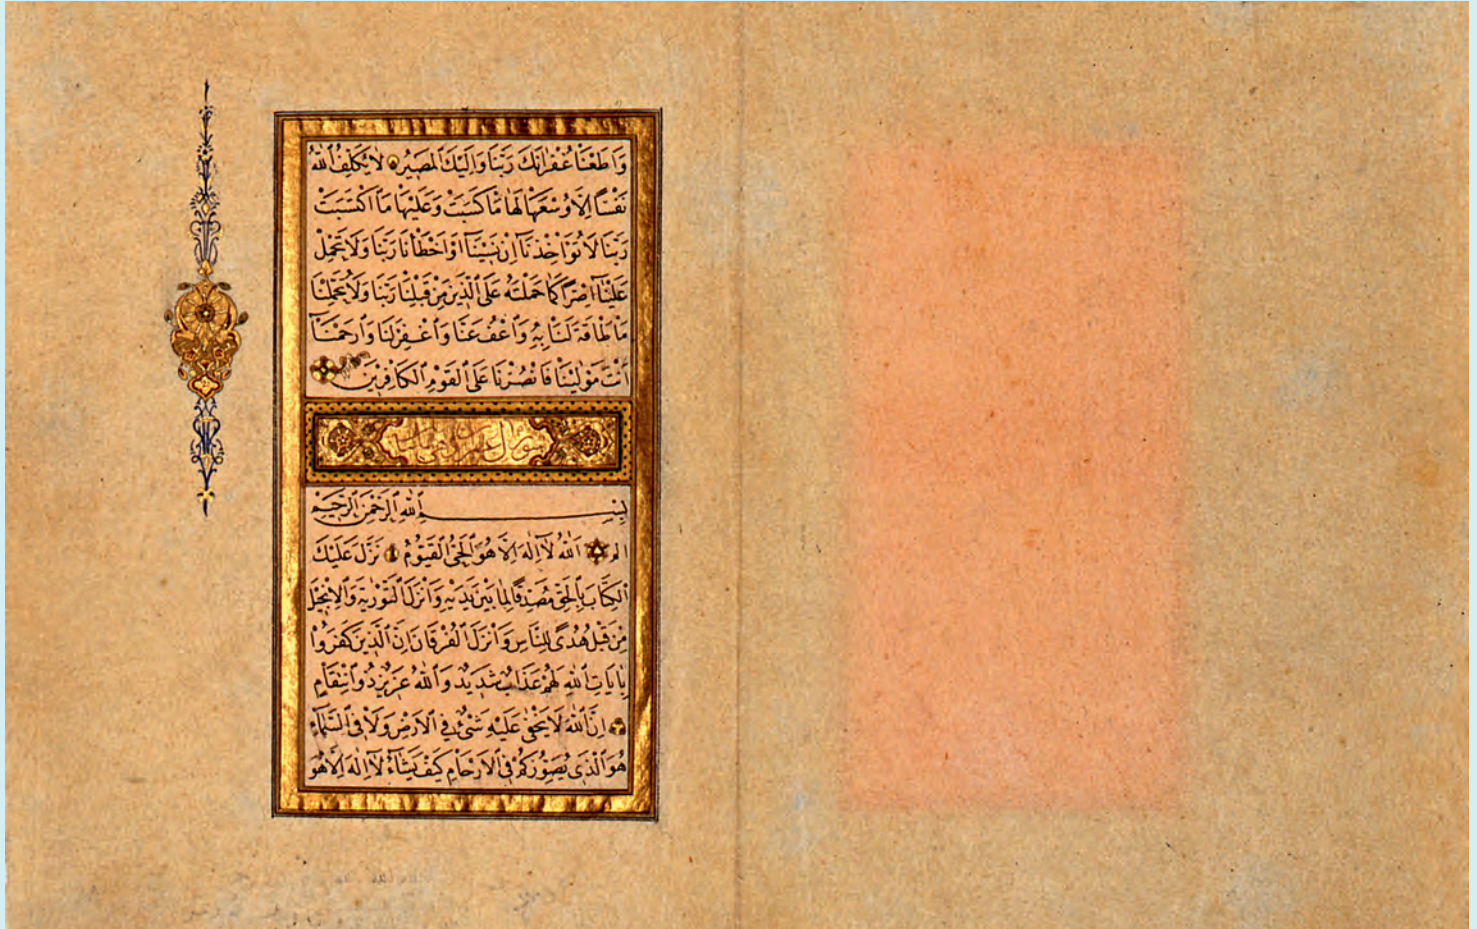 وَاَطَعْنَا غُفْرَانَكَ رَبَّنَا وَاِلَيْكَ الْمَصِيرُ لَا يُكَلِّفُ اللّٰهُ
نَفْسًا اِلَّا وُسْعَهَا لَهَا مَا كَسَبَتْ وَعَلَيْهَا مَا اكْتَسَبَتْ
رَبَّنَا لَا تُؤَاخِذْنَآ اِنْ نَسِينَآ اَوْ اَخْطَأْنَا رَبَّنَا وَلَا تَحْمِلْ
عَلَيْنَآ اِصْرًا كَمَا حَمَلْتَهُ عَلَى الَّذِينَ مِنْ قَبْلِنَا رَبَّنَا وَلَا تُحَمِّلْنَا
مَا طَاقَةَ لَنَا بِهِ وَاعْفُ عَنَّا وَاغْفِرْ لَنَا وَارْحَمْنَآ
اَنْتَ مَوْلٰينَا فَانْصُرْنَا عَلَى الْقَوْمِ الْكَافِرِينَ
بِسْمِ اللّٰهِ الرَّحْمٰنِ الرَّحِيمِ
الم اَللّٰهُ لَآ اِلٰهَ اِلَّا هُوَ الْحَيُّ الْقَيُّومُ نَزَّلَ عَلَيْكَ
الْكِتَابَ بِالْحَقِّ مُصَدِّقًا لِمَا بَيْنَ يَدَيْهِ وَاَنْزَلَ التَّوْرٰيةَ وَالْاِنْجِيلَ
مِنْ قَبْلُ هُدًى لِلنَّاسِ وَاَنْزَلَ الْفُرْقَانَ اِنَّ الَّذِينَ كَفَرُوا
بِاٰيَاتِ اللّٰهِ لَهُمْ عَذَابٌ شَدِيدٌ وَاللّٰهُ عَزِيزٌ ذُو انْتِقَامٍ
اِنَّ اللّٰهَ لَا يَخْفٰى عَلَيْهِ شَيْءٌ فِي الْاَرْضِ وَلَا فِي السَّمَآءِ
هُوَ الَّذِي يُصَوِّرُكُمْ فِي الْاَرْحَامِ كَيْفَ يَشَآءُ لَآ اِلٰهَ اِلَّا هُوَ